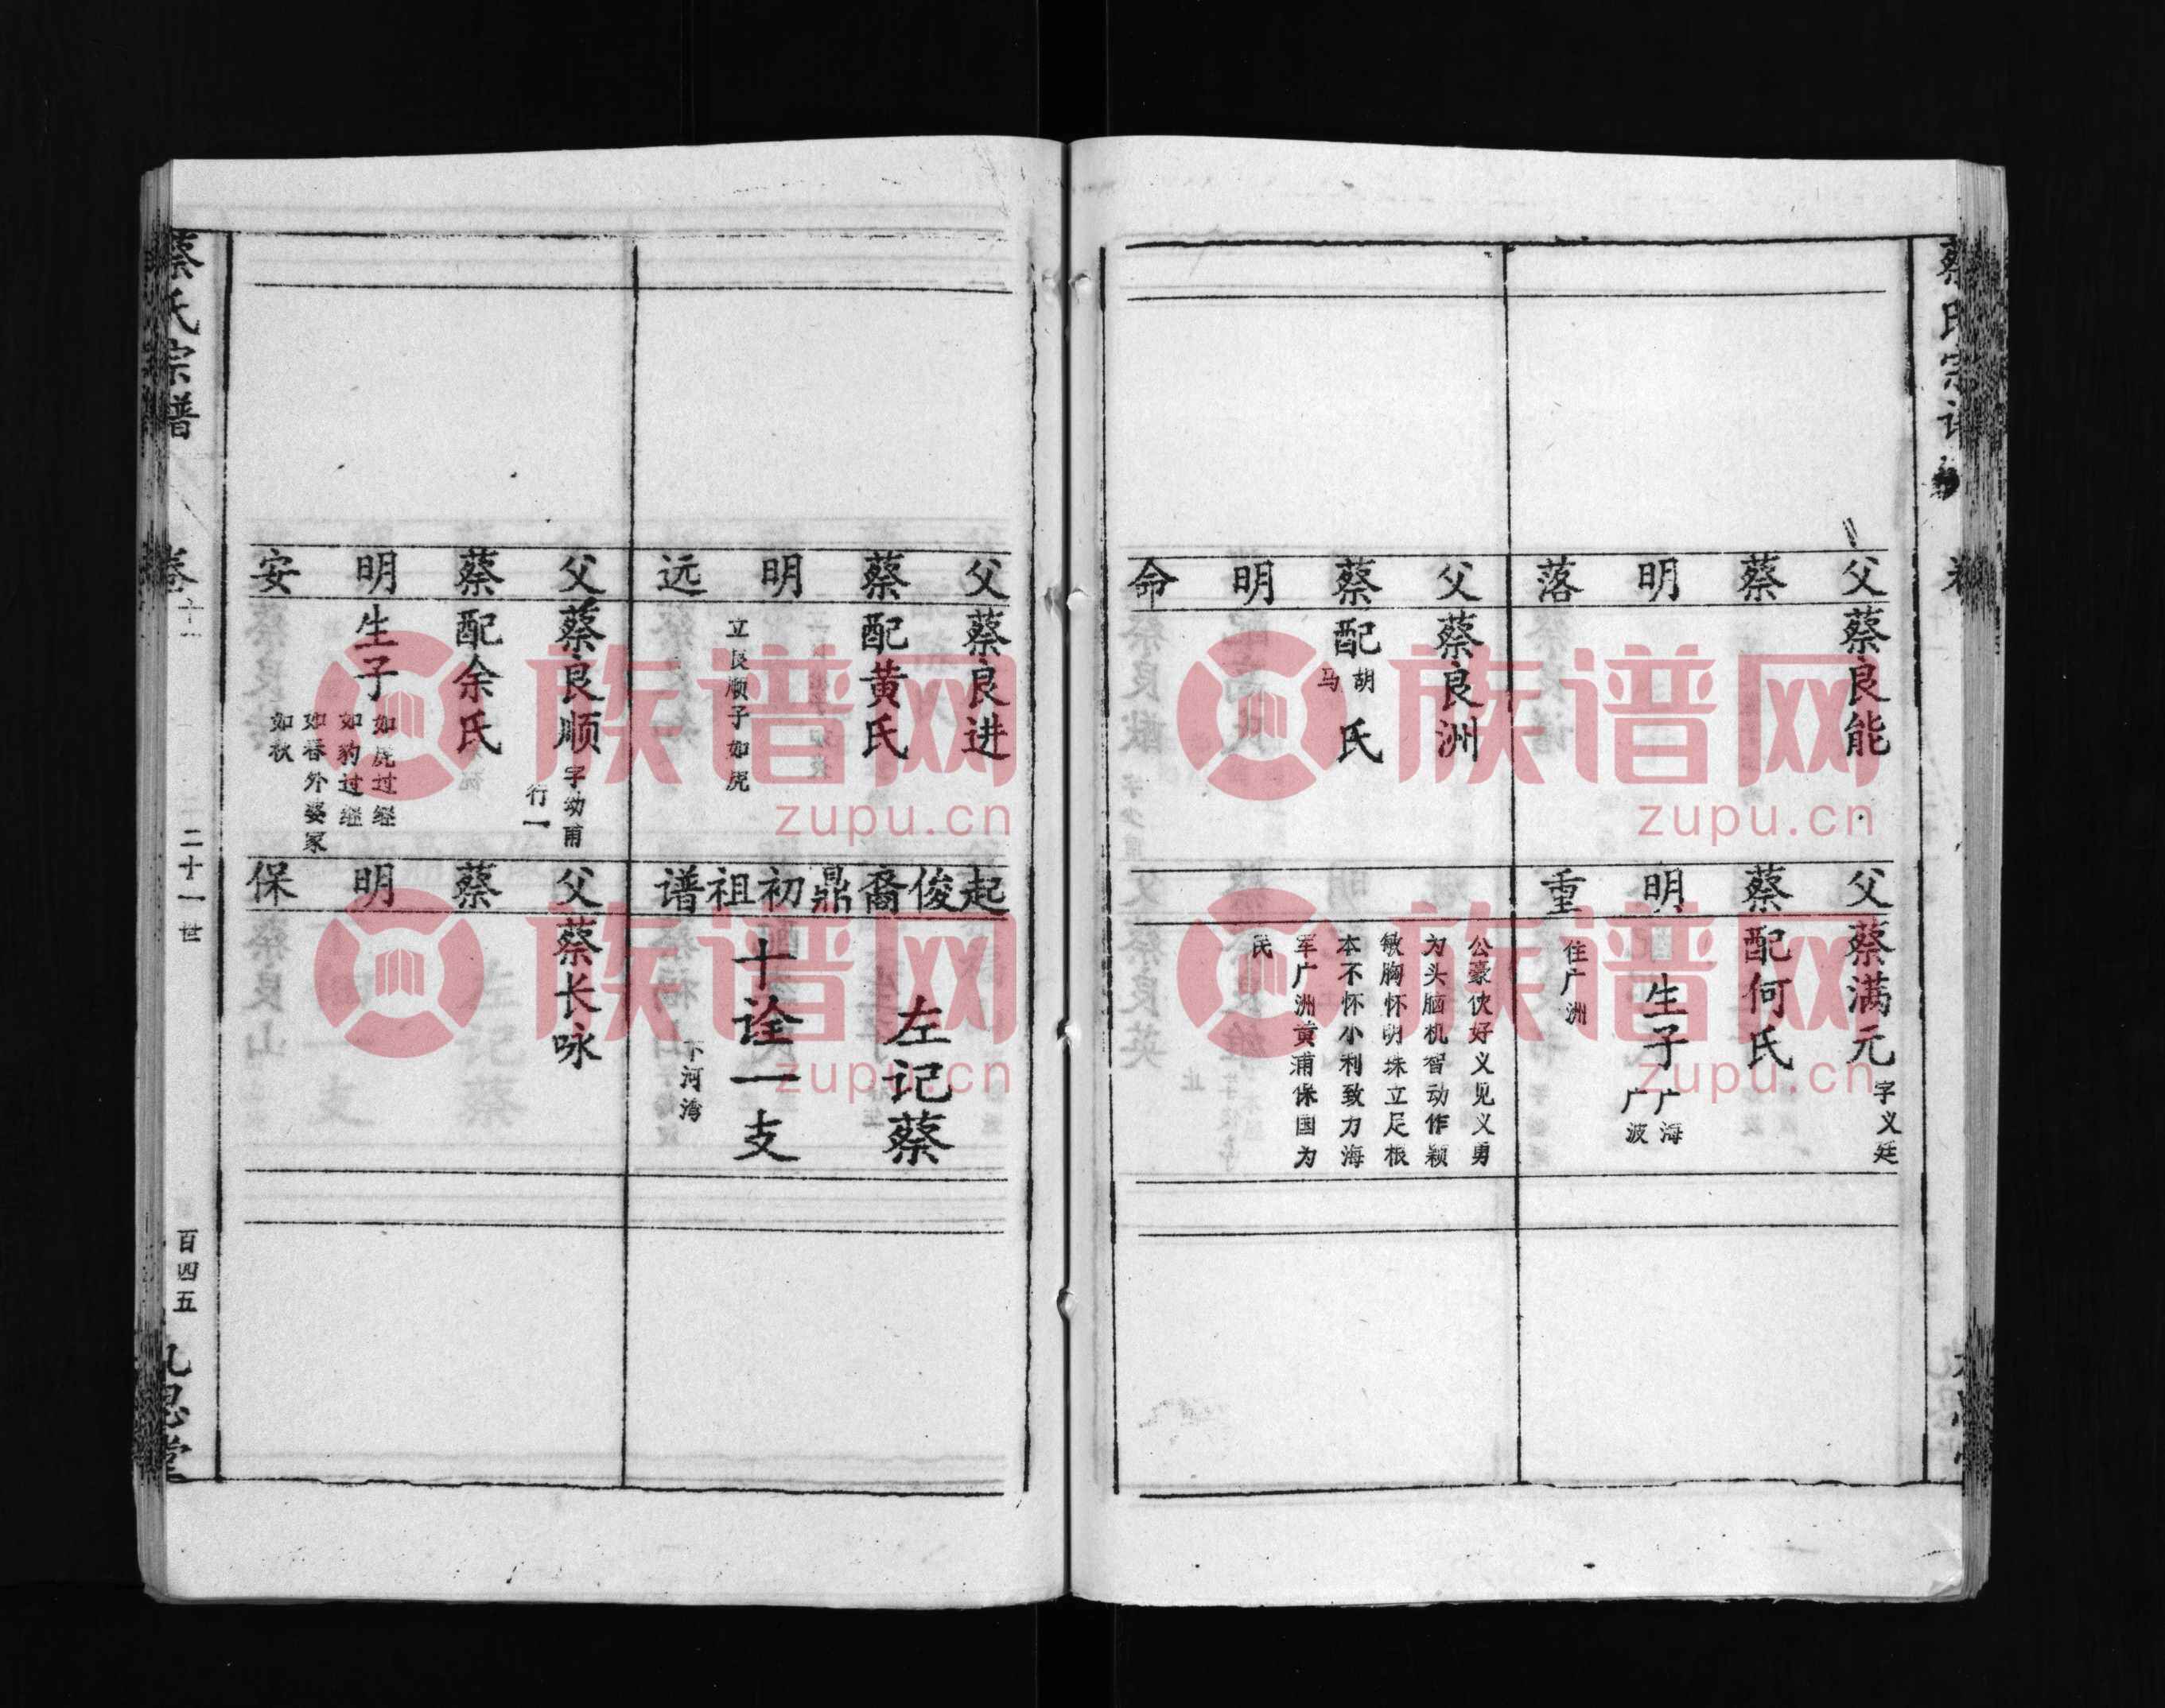 蔡氏宗谱
父蔡明落
蔡良能
父蔡明命
蔡良洲
配胡马氏
父蔡明重
蔡满元 字义廷
配何氏
生子 广海 广波
住广洲
公豪伙好义见义勇
为头脑机智动作颖
敏胸怀明珠立足根
本不怀小利致力海
军广洲黄浦保国为
民
父蔡明远
蔡良进
配黄氏
立良顺子如虎
父蔡明安
蔡良顺 字动甫
行一
配余氏
生子 如虎过继
如豹过继
如春外婆家
如秋
起俊裔鼎初祖谱
左记蔡
十诠一支
下河湾
父蔡明保
蔡长咏
蔡氏宗谱
卷十一
二十一世
百四五
九思堂
族谱网
zupu.cn
族谱网
zupu.cn
族谱网
zupu.cn
族谱网
zupu.cn